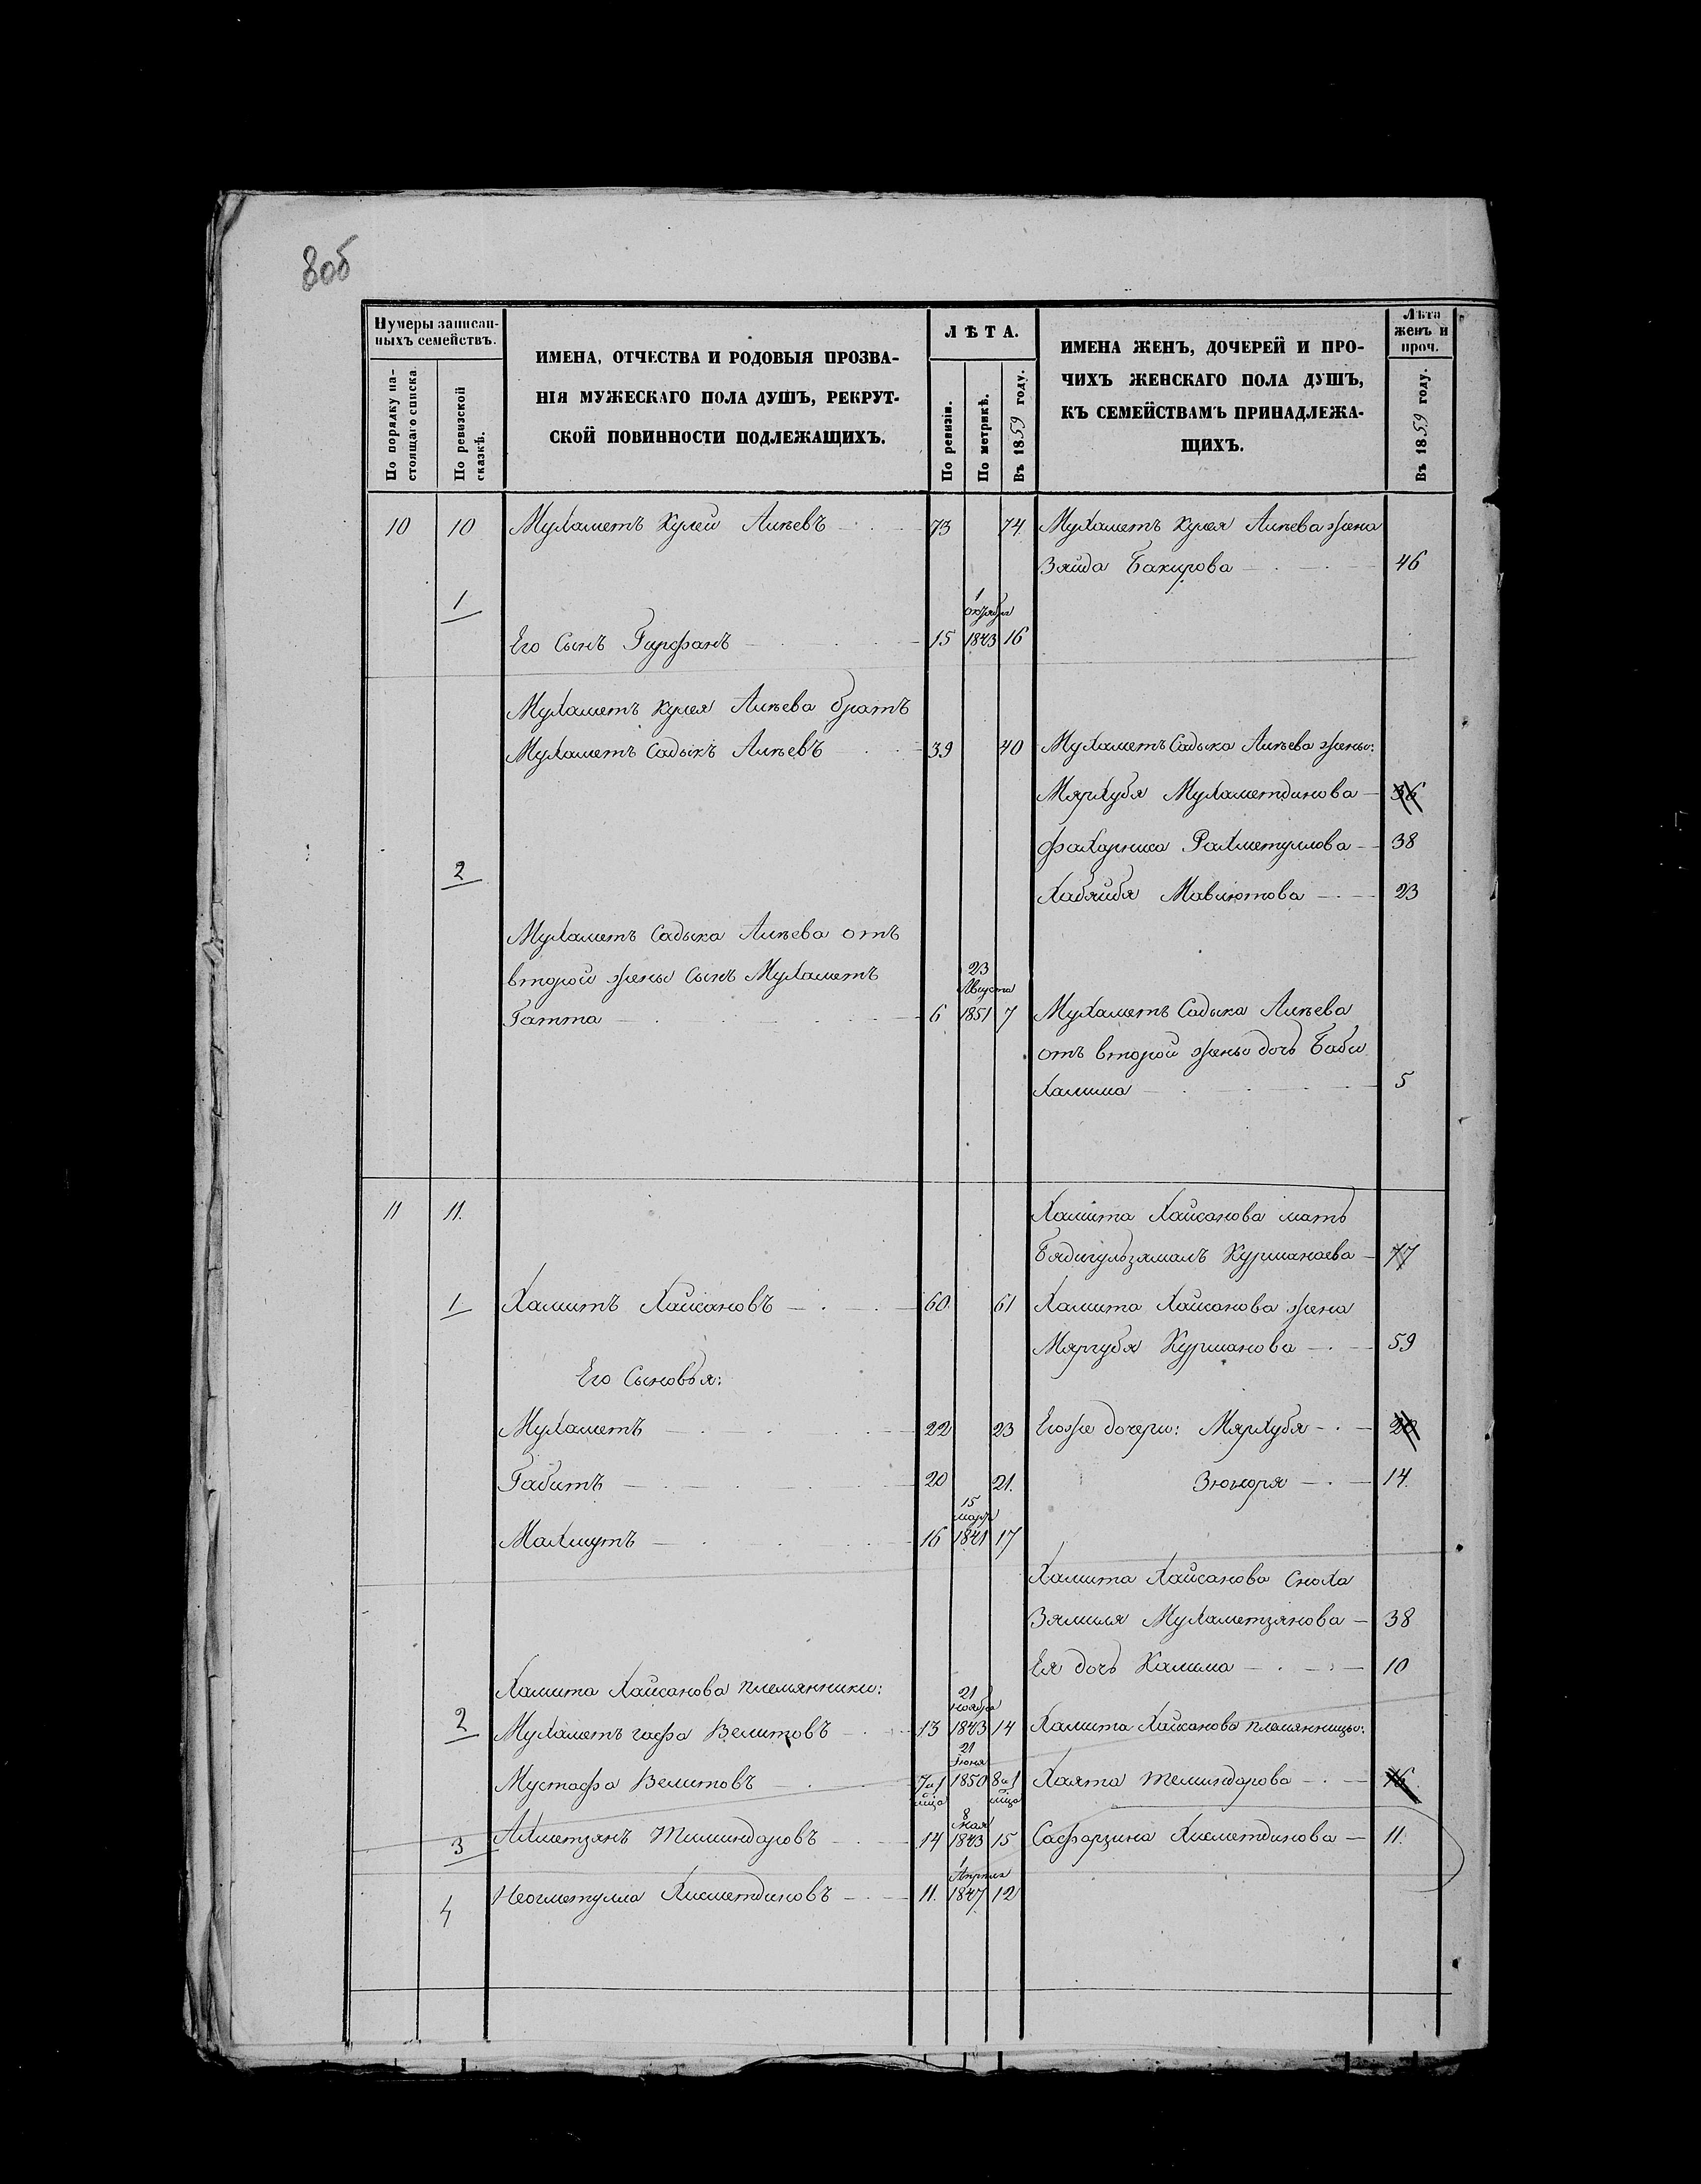 8об
Нумеры записан-
ныхъ семействъ.
По порядку на-
стоящаго списка.
По ревизской
сказкѣ.
ИМЕНА, ОТЧЕСТВА И РОДОВЫЯ ПРОЗВА-
НІЯ МУЖЕСКАГО ПОЛА ДУШЪ, РЕКРУТ-
СКОЙ ПОВИННОСТИ ПОДЛЕЖАЩИХЪ.
ЛѢТА.
По ревизіи.
По метрикѣ.
Въ 1859 году.
ИМЕНА ЖЕНЪ, ДОЧЕРЕЙ И ПРО-
ЧИХЪ ЖЕНСКАГО ПОЛА ДУШЪ,
КЪ СЕМЕЙСТВАМЪ ПРИНАДЛЕЖА-
ЩИХЪ.
Лѣта
женъ и
проч.
Въ 1859 году.
10 10 Мухаметъ Кулей Алѣевъ 73 74 Мухаметъ Кулея Алѣева жена
Зяйда Бакирова 46
1 1
октября
Его Сынъ Гирфанъ 15 1843 16
Мухаметъ Кулея Алѣева братъ
Мухаметъ Садыкъ Алѣевъ 39 40 Мухаметъ Садыка Алѣева жены:
Мярхубя Мухаметдинова 36
Рахметуллова 38
2
Хабяйбя Мавлютова 23
Мухаметъ Садыка Алѣева отъ
второй жены Сынъ Мухаметъ 23
Августа
Гатта 6 1851 7 Мухаметъ Садыка Алѣева
отъ второй жены дочь Баби
Халима 5
11 11. Хамита Хайсанова мать
Бядигульзямалъ Курманаева 77
1 Хамитъ Хайсановъ 60 61 Хамита Хайсанова жена
Мяргубя Курманова 59
Его Сыновья:
Мухаметъ 22 23 Егоже дочери: Мярхубя 20
Габитъ 20 21. Зюгоря 14.
15
март
Махмутъ 16 1841 17
Хамита Хайсанова Сноха
Зямиля Мухаметзянова 38
Ея дочь Калима 10
Хамита Хайсанова племянники: 21
ноября
2 Мухаметъ гафа Велитовъ 13 1843 14 Хамита Хайсанова племянницы:
21
Июня
Мустафа Велитовъ 7 и 1 1850 8 и 1 Хаята Теминдарова 16
мѣца мѣца
8
мая
3 Ахметзянъ Тиминдаровъ 14 1843 15 Сафарзина Хисметдинова 11.
1
Апреля
4 Неогметулла Хисметдиновъ 11. 1847 12